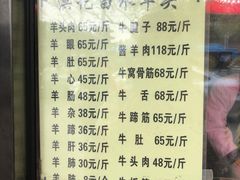 羊头肉65元/斤
羊 眼65元/斤
羊 肚65元/斤
羊 肠48元/斤
羊 杂38元/斤
羊 蹄36元/斤
羊 肝36元/斤
羊 肺30元/斤
牛 腱子 88元/斤
酱羊肉118元/斤
牛窝骨筋68元/斤
牛 舌 68元/斤
牛蹄筋65元/斤
牛 肚 65元/斤
牛头肉48元/斤